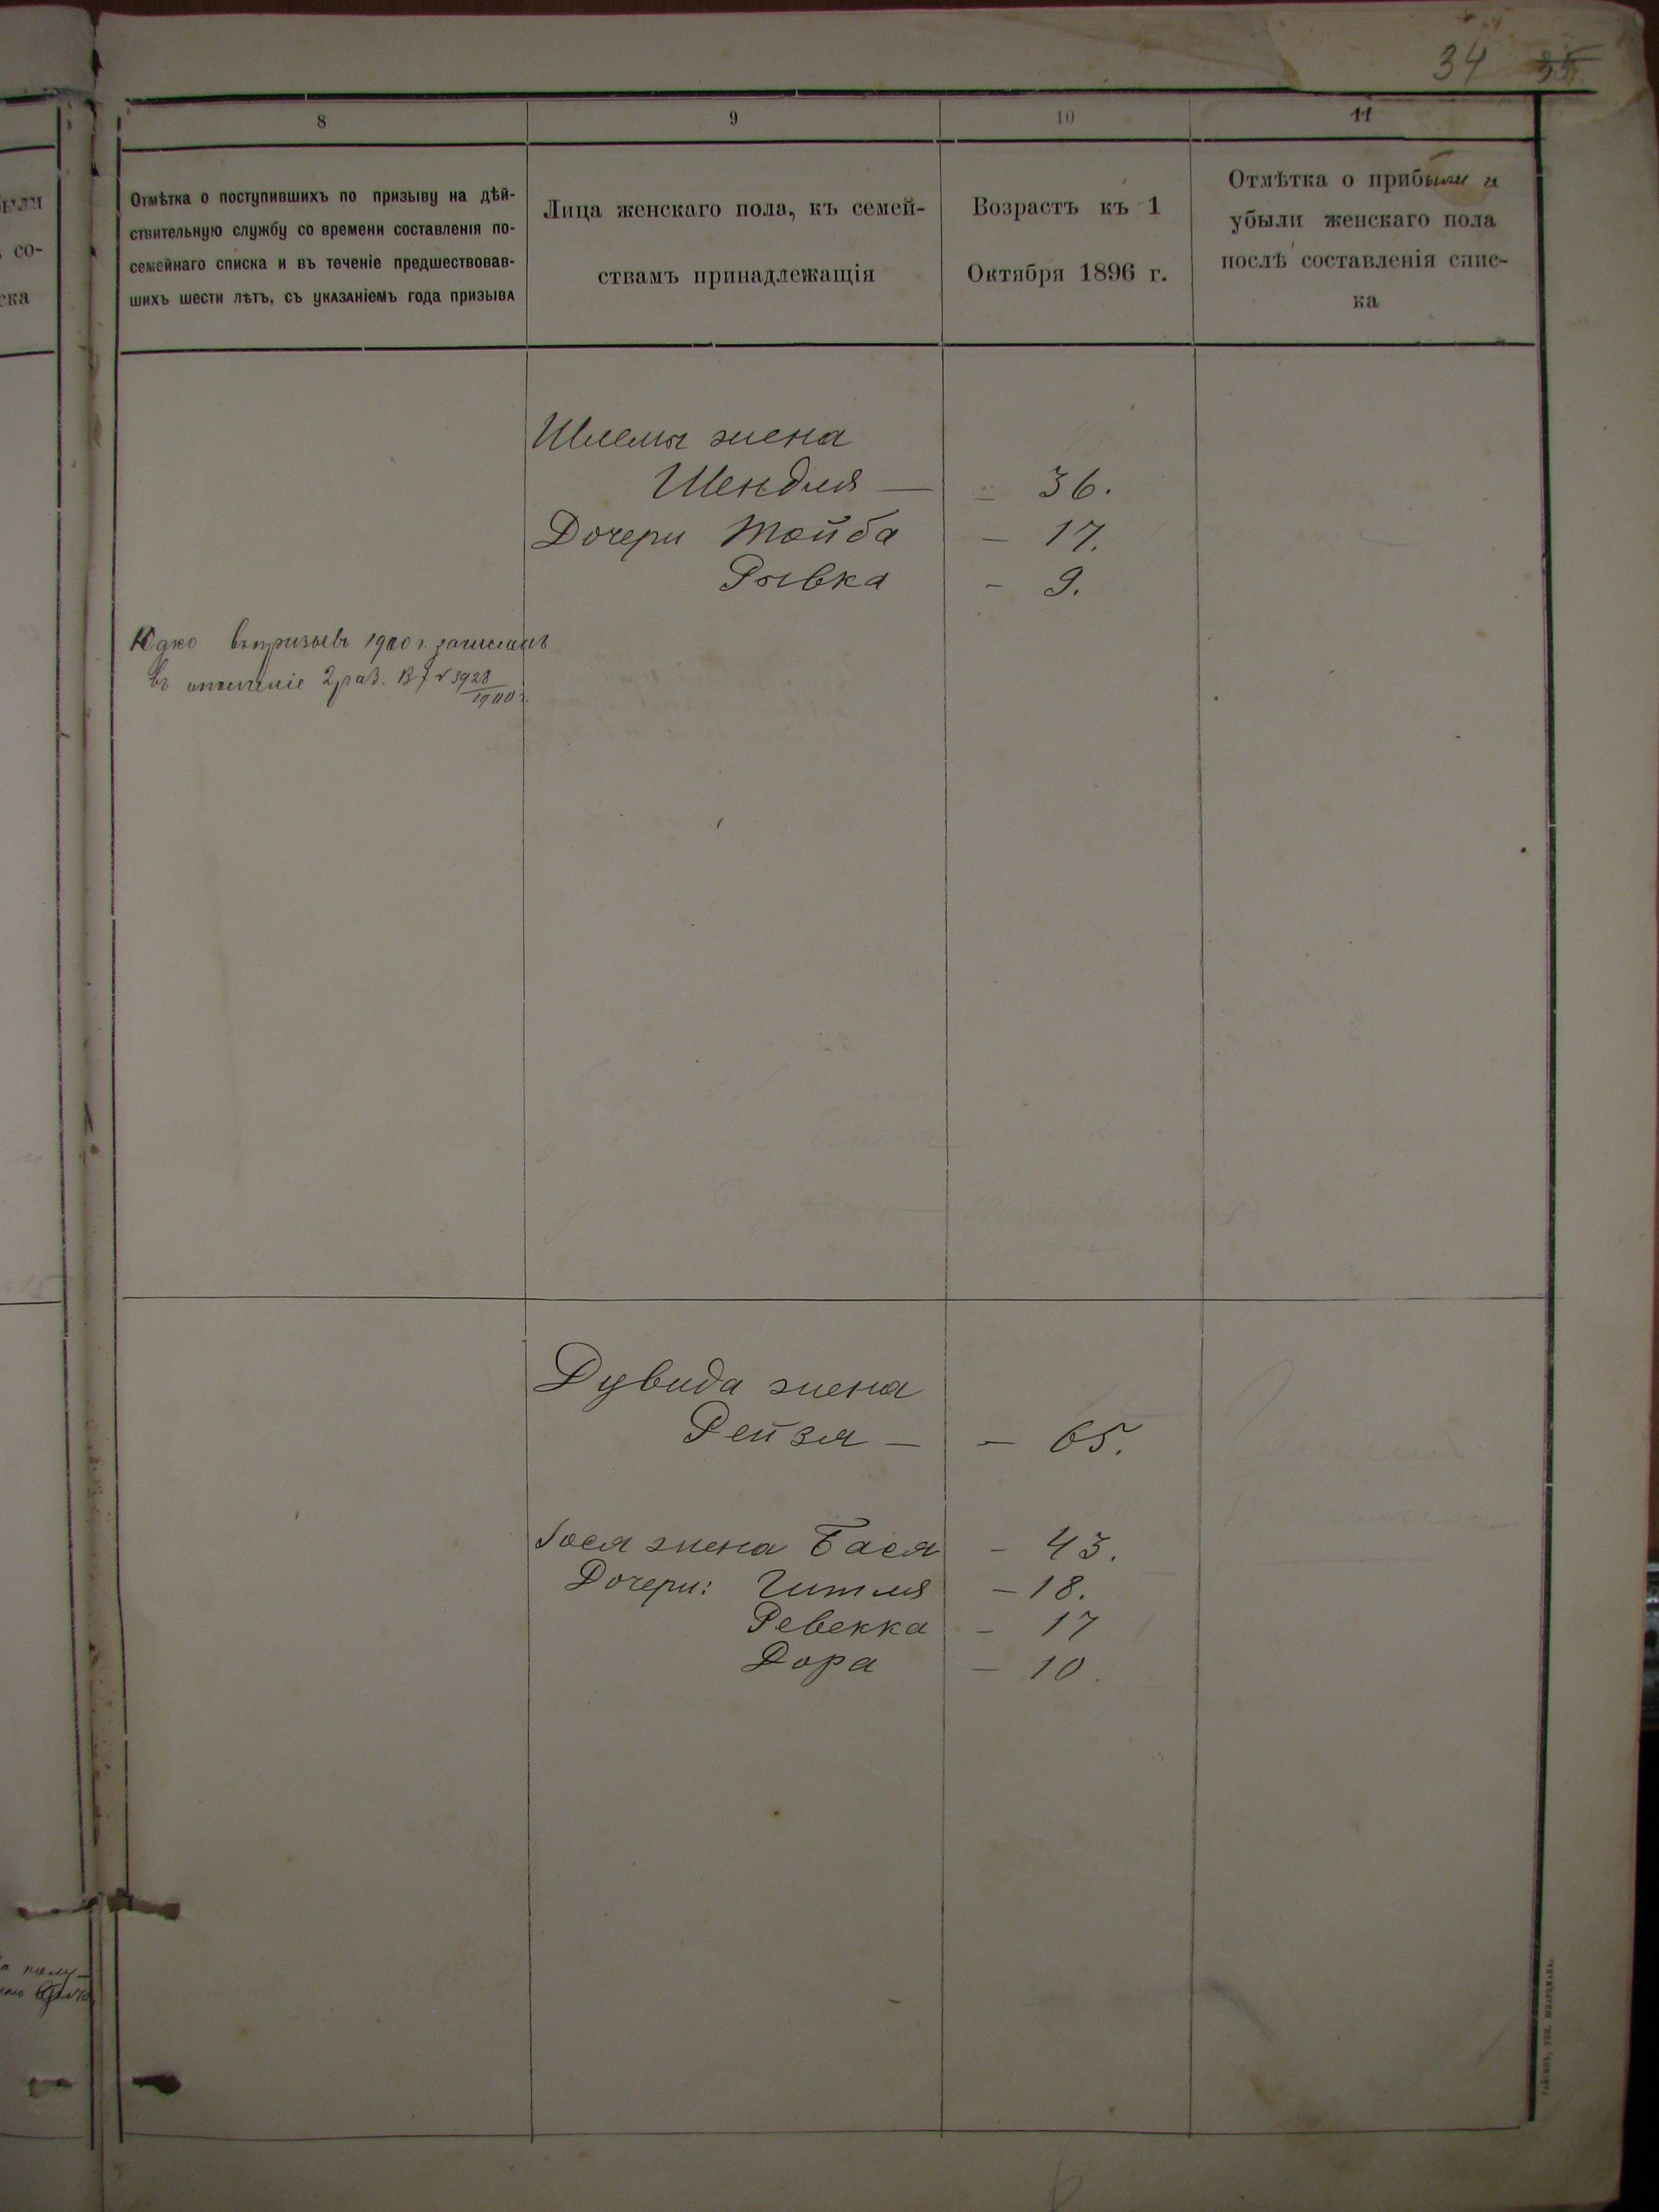 34 35
8
9
10
11
Отмѣтка о поступившихъ по призыву на дѣй-
ствительную службу со времени составленія по-
семейнаго списка и въ теченіе предшествовав-
шихъ шести лѣтъ, съ указаніемъ года призыва
Лица женскаго пола, къ семей-
ствамъ принадлежащія
Возрастъ къ 1
Октября 1896 г.
Отмѣтка о прибыли и
убыли женскаго пола
послѣ составленія спис-
ка
были
со-
ска
Шлемы жена
Шендля — - 36.
Дочери Тойба - 17.
Рывка - 9.
Юдко въ призывъ 1900 г. зачисленъ
въ ополченіе 2 раз. 3928
1900 г.
Дувида жена
Рейзя — - 65.
Іося жена Бася - 43.
Дочери: Гитля - 18.
Ревекка - 17
Дора - 10.